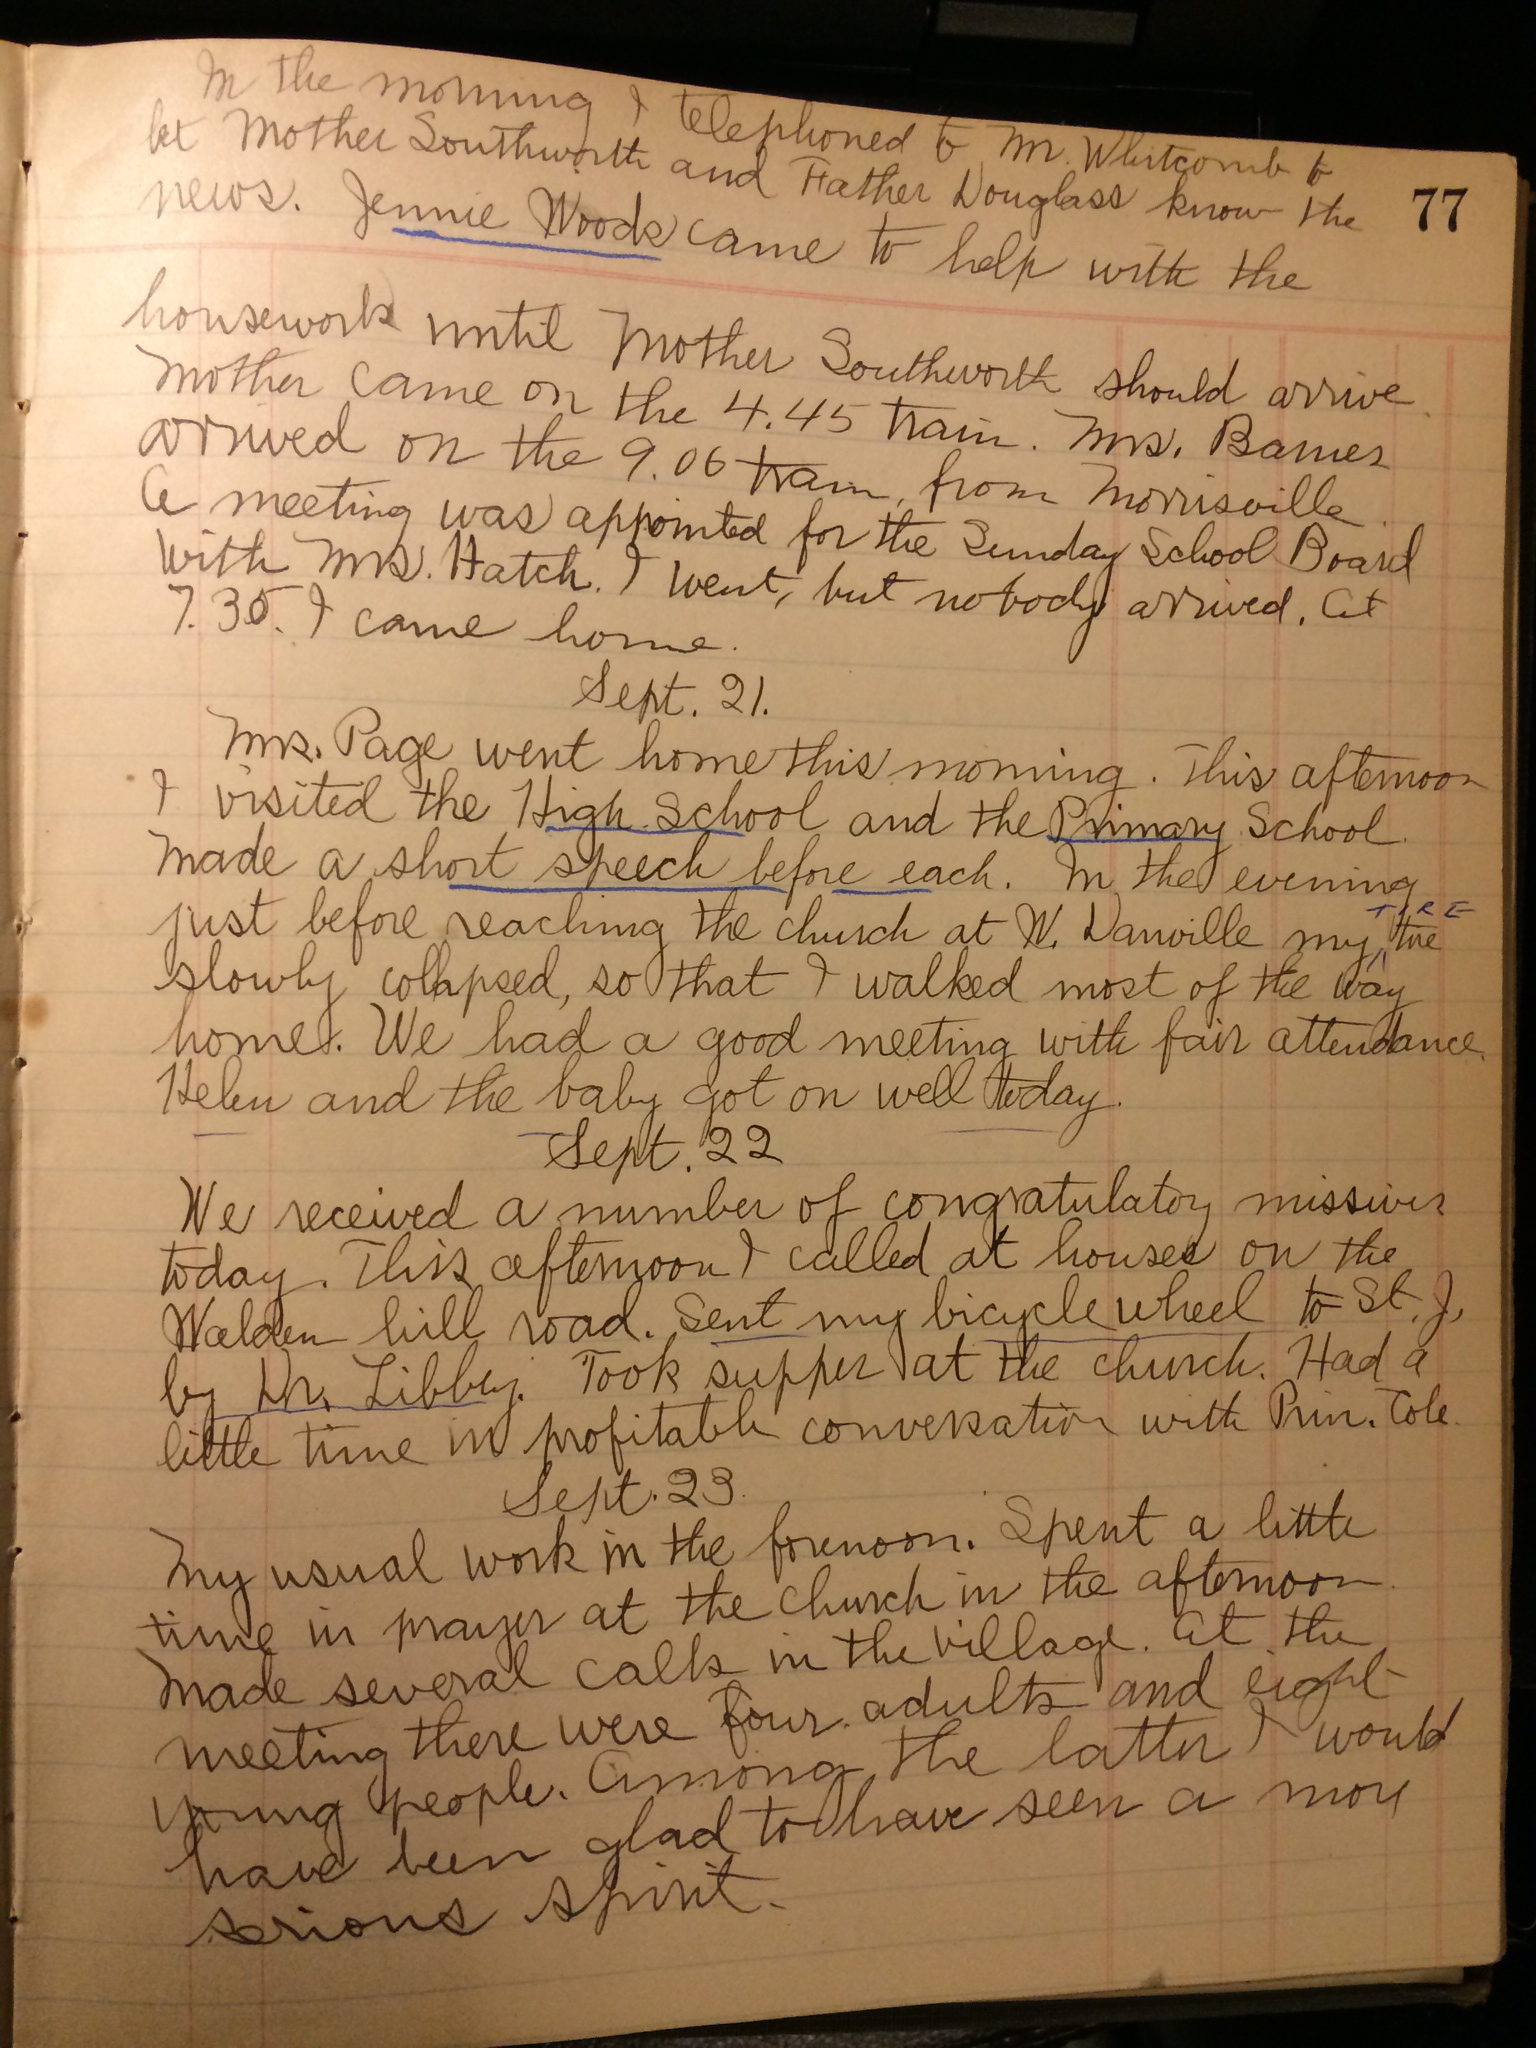 In the morning I telephoned to Mr. Whitcomb to
let Mother Southworth and Father Douglass know the
77
news. Jennie Woods came to help with the
housework until Mother Southworth should arrive.
Mother came on the 4.45 train. Mrs. Barnes
arrived on the 9.06 train, from Morrisville.
A meeting was appointed for the Sunday School Board
with Mrs. Hatch. I went, but nobody arrived. At
7.35. I came home.
Sept. 21.
Mrs. Page went home this morning. This afternoon
I visited the High School and the Primary School.
Made a short speech before each. In the evening
TIRE
just before reaching the church at W. Danville my tire
slowly collapsed, so that I walked most of the way
home. We had a good meeting with fair attendance.
Helen and the baby got on well today.
Sept. 22
We received a number of congratulatory missives
today. This afternoon I called at houses on the
Walden hill road. Sent my bicycle wheel to St. J.
by Dr. Libbey. Took supper at the church. Had a
little time in profitable conversation with Prin. Cole.
Sept. 23.
My usual work in the forenoon. Spent a little
time in prayer at the church in the afternoon.
Made several calls in the village. At the
meeting there were four adults and eight
young people. Among the latter I would
have been glad to have seen a more
serious spirit.